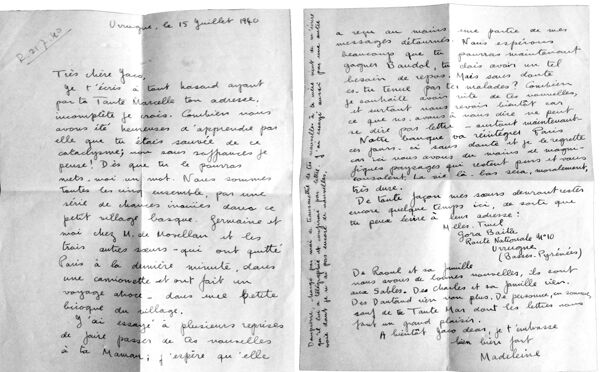 R 21/7/40
Urrugne, le 15 Juillet 1940
Très chère Yaco,
Je t'écris à tout hasard ayant
par la Tante Marcelle ton adresse,
incomplète je crois. Combien nous
avons été heureuses d'apprendre par
elle que tu étais sauvée de ce
cataclysme; non sans souffrances je
pense! Dès que tu le pourras
mets-moi un mot. Nous sommes
toutes les cinq ensemble, par une
série de chances inouïes dans ce
petit village basque. Germaine et
moi chez M. de Mosellan et les
trois autres sœurs - qui ont quitté
Paris à la dernière minute, dans
une camionnette et ont fait un
voyage atroce - dans une petite
bicoque du village.
J'ai essayé à plusieurs reprises
de faire passer de tes nouvelles
à ta Maman; j'espère qu'elle
a reçu au moins une partie de mes
messages détournés. Nous espérons
beaucoup que tu pourras maintenant
gagner Bandol, tu dois avoir un tel
besoin de repos. Mais sans doute
es-tu tenue par tes malades? Combien
je souhaite avoir vite de tes nouvelles,
et surtout nous revoir bientôt car
ce que ns. avons à vous dire ne peut
se dire par lettre - surtout maintenant.
Notre banque va réintégrer Paris
ces jours-ci sans doute et je le regrette
car ici nous avons du moins de magni-
fiques paysages qui restent purs et vous
consolent. La vie là-bas sera, moralement,
très dure.
De toute façon mes sœurs devront rester
encore quelque temps ici, de sorte que
tu peux écrire à leur adresse:
Melles. Tinel
Gora Baita
Route Nationale N° 10
Urrugne
(Basses. Pyrénées)
De Raoul et sa famille
nous avons de bonnes nouvelles, ils sont
aux Sables. Des Charles et sa famille rien.
Des Dautand rien non plus. De personne, en somme,
sauf de ta Tante Mar dont les lettres nous
font un grand plaisir.
A bientôt Yaco dear, je t'embrasse
bien bien fort
Madeleine